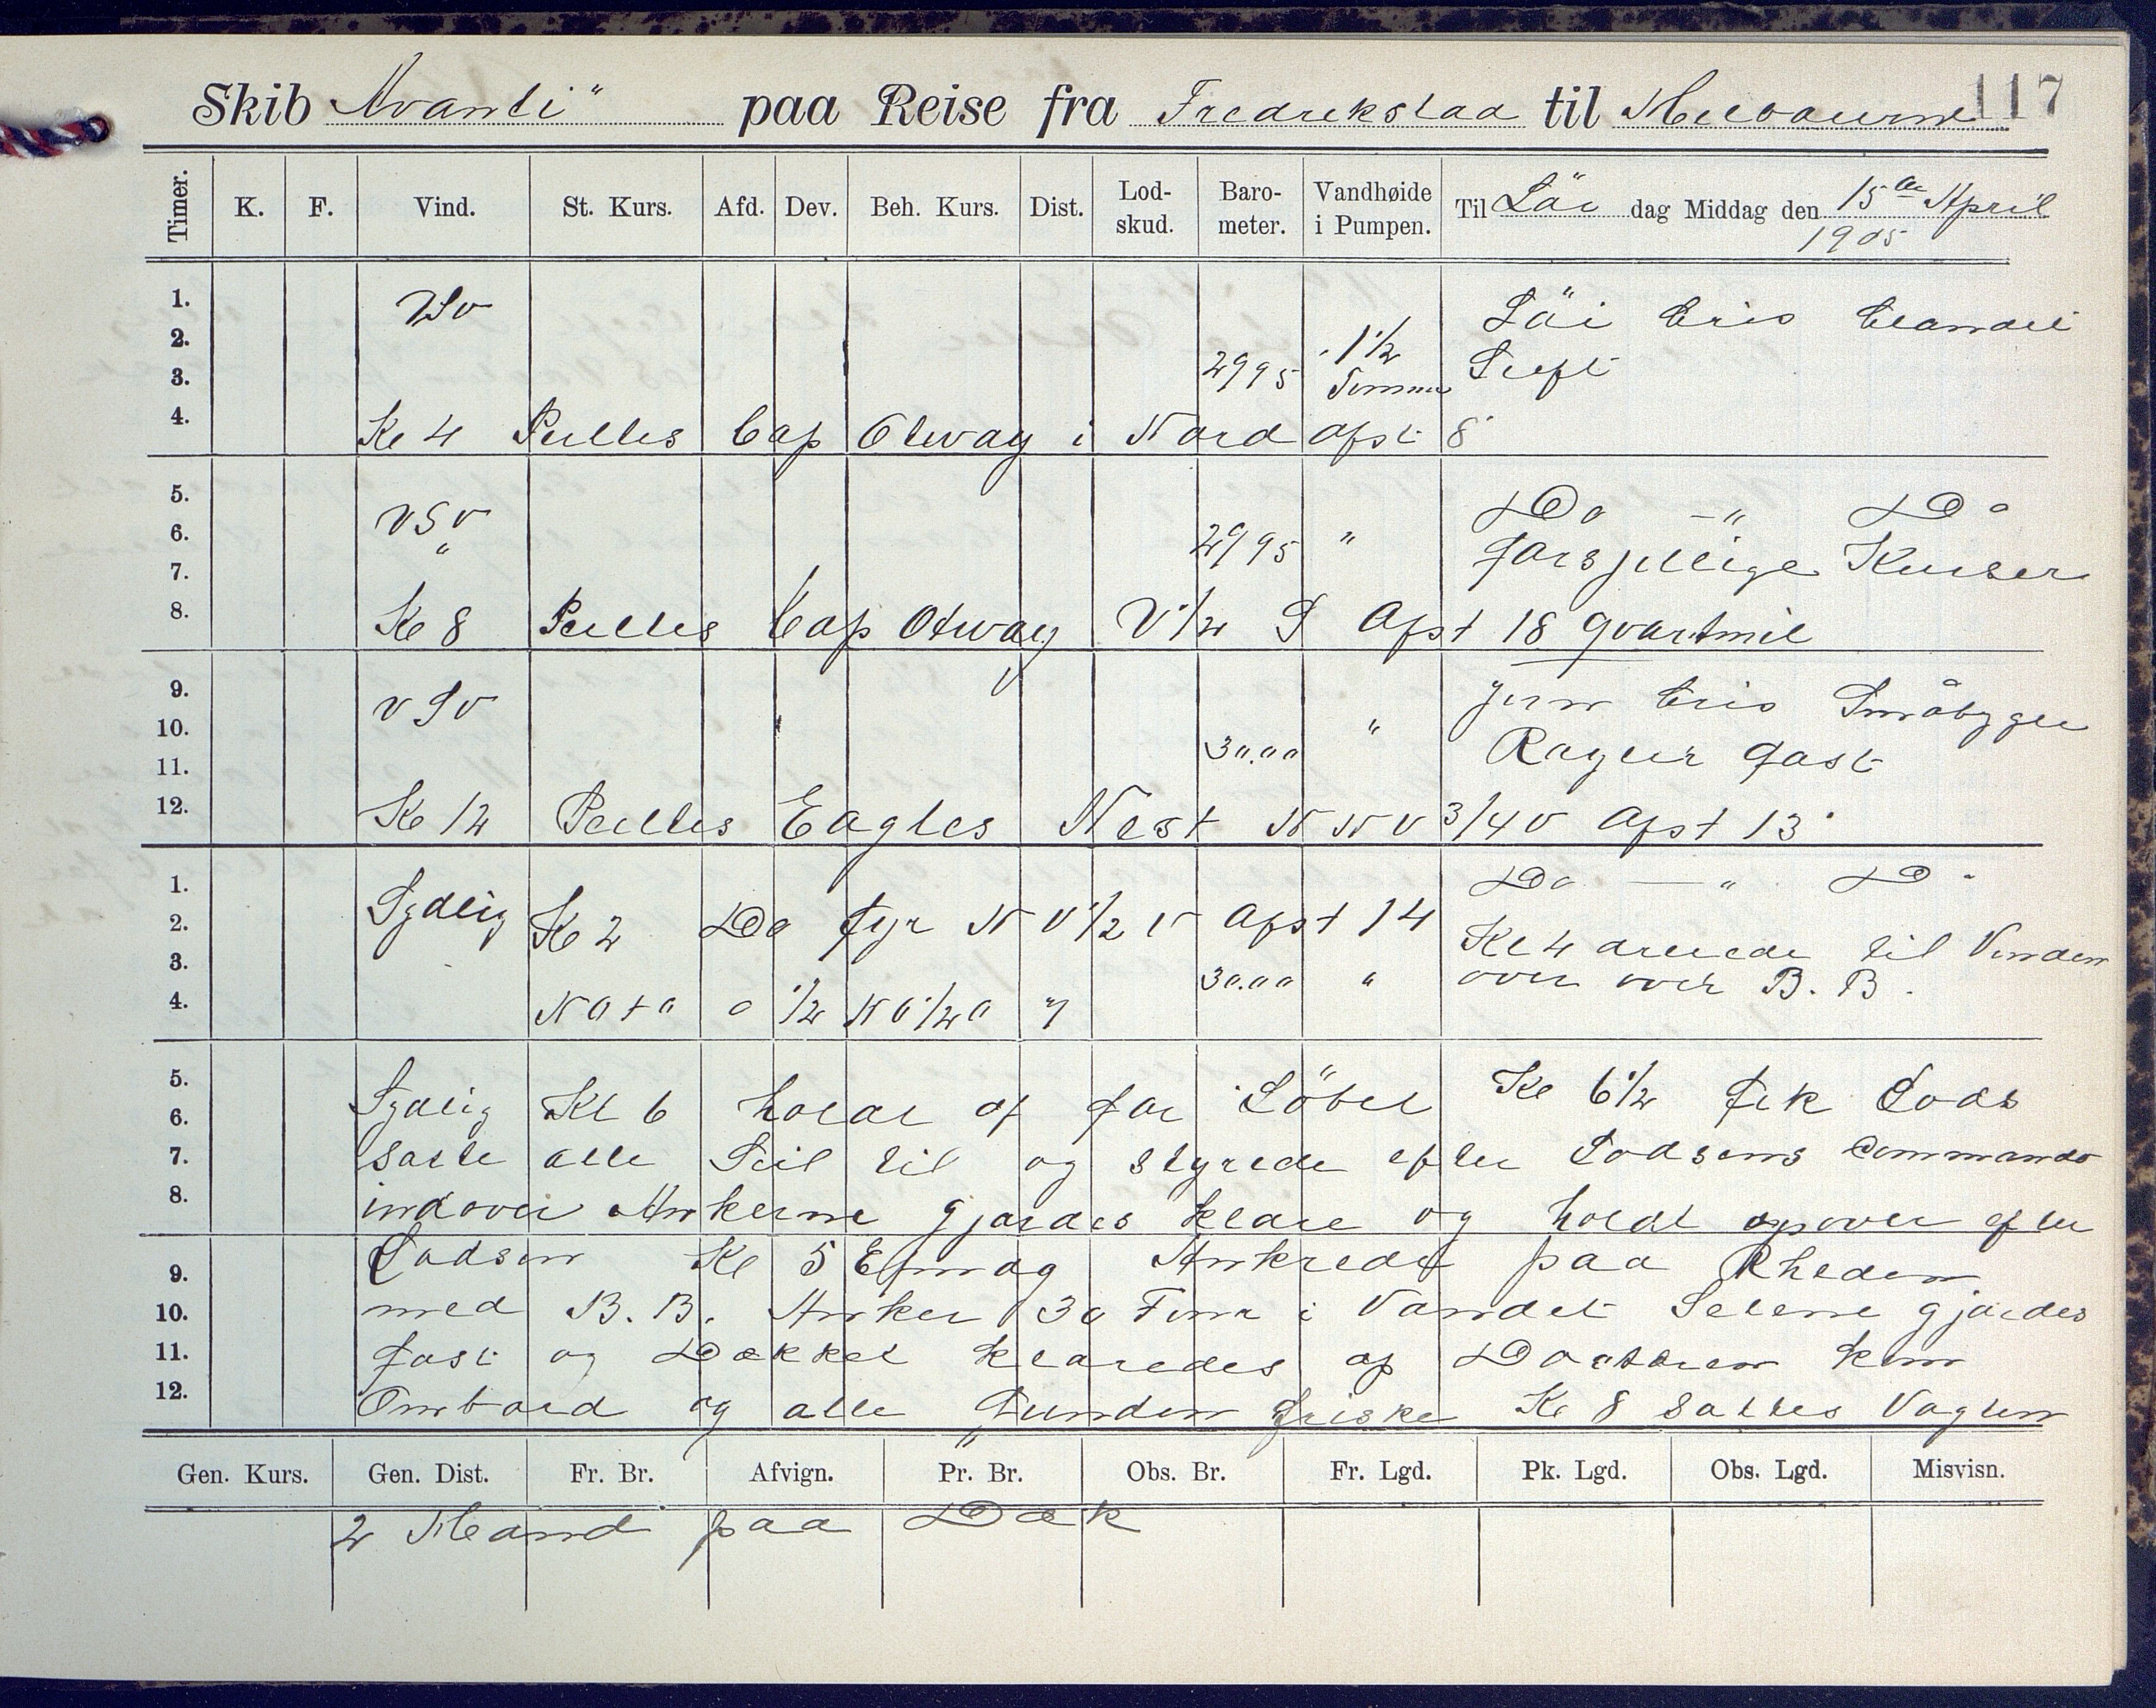 117
Skib "Avanti" paa Reise fra Fredrekstad til Melbourne
Timer. K. F. Vind. St. Kurs. Afd. Dev. Beh. Kurs. Dist. Lod-skud. Baro-meter. Vandhøide i Pumpen. Til Lör dag Middag den 15de April 1905
1. VSV Löi bris
2. 1½
3. 2995 Tommer Luft
4. Kl 4 Peiltes Cap Otway i Nord afst 8'
5. Do -"- Do
6. VSV " 2995 " forsjellige Kurser
7.
8. Kl 8 Peiltes Cap Otway V½ S Afst 18 Qvartmil
9. VSV jevn bris Småbyger
10. " Rayler fast
11. 30.00
12. Kl 12 Peiltes Eagles Nest NNV 3/4 V Afst 13'
1. Do —"— Do
2. Sydlig Kl 2 Do fyr NV½V Afst 14
3. Kl 4 til Vinden
30.00 " over B. B.
4. NOtO 0 ½ NO½O 7
5. Sydlig Kl 6 holdt af for Löbet Kl 6½ fik Lods
6.
7. satte alle Seil til og styrede efter Lodsens Commando
8. indover Ankerne gjordes klare og holdt opover efter
9. Lodsen Kl 5 Efmdag Ankrede paa Rheden
10. med B. B. Anker 30 Fmr i Vandet Seilene gjordes
11. fast og Dækket klaredes op Doctoren kom
12. Ombord og alle funden friske Kl 8 sattes Vagten
Gen. Kurs. Gen. Dist. Fr. Br. Afvign. Pr. Br. Obs. Br. Fr. Lgd. Pk. Lgd. Obs. Lgd. Misvisn.
2 Mand paa Dæk